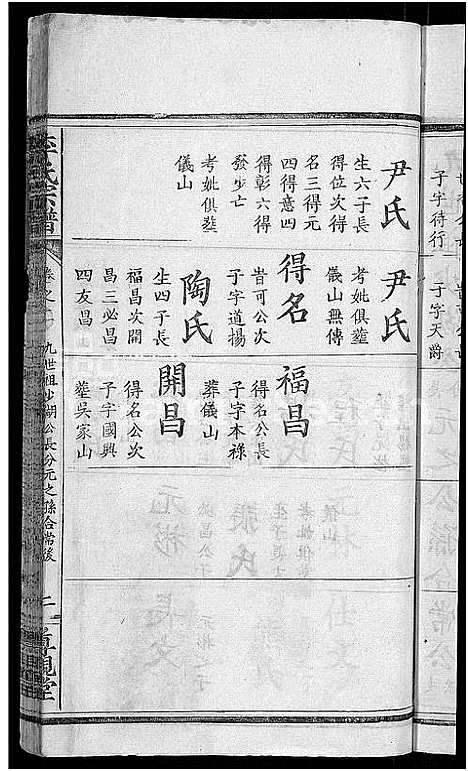 子字待行
子字天爵
尹氏
生六子長
得位次得
名三得元
四得意四
得彰六得
發少亡
考妣俱塟
儀山
尹氏
考妣俱塟
儀山無傳
得名
昔可公次
子字道揚
陶氏
生四子長
福昌次開
昌三必昌
四友昌
福昌
得名公長
子字本祿
葬儀山
開昌
得名公次
子字國興
塟吳家山
李氏宗譜
卷之
九世祖少湖公長分元之孫合常後
尊親堂